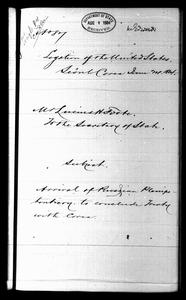 DEPARTMENT OF STATE
AUG 1884
RECEIVED
Legation of the United States
Seoul Corea June
Mr Lucius H. Foote
To the Secretary of State.
Subject.
Arrival of Russian Plenipo-
tentiary to conclude Treaty
with Corea.